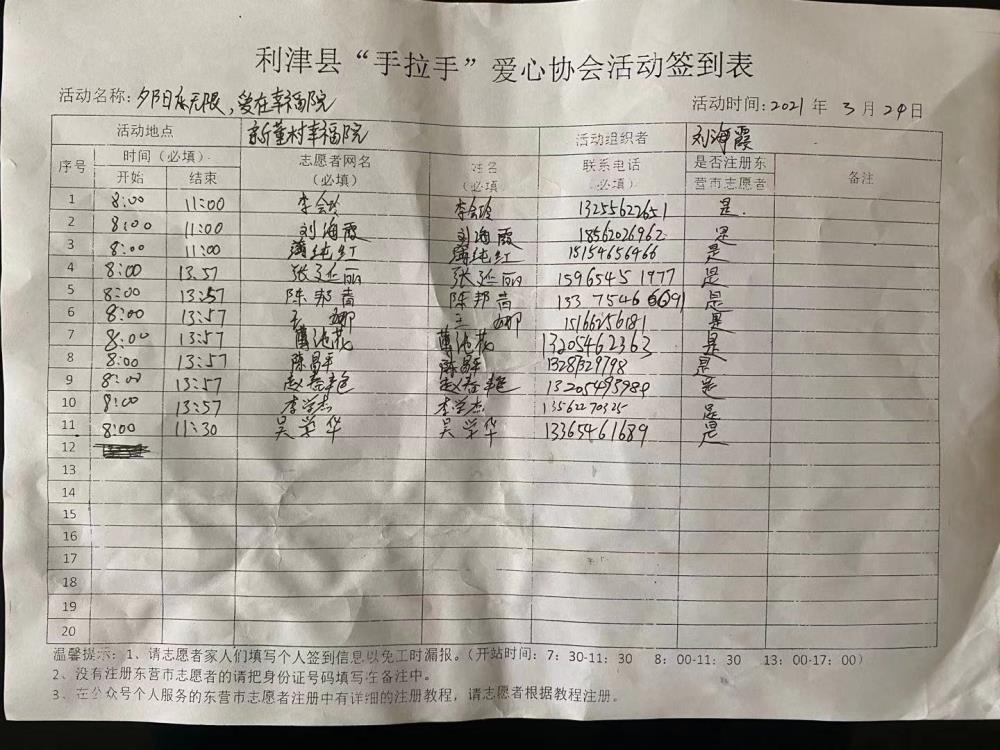 利津县“手拉手”爱心协会活动签到表
活动名称：夕阳无限，爱在幸福院 活动时间：2021年 3月 24日
活动地点 新董村幸福院 活动组织者 刘海霞
序号 时间（必填） 志愿者网名（必填） 姓名（必填 联系电话（必填） 是否注册东营市志愿者 备注
开始 结束
1 8:00 11:00 李会玲 李会玲 13255622651 是.
2 8:00 11:00 刘海霞 刘海霞 18562026962 是
3 8:00 11:00 薄纯红 薄纯红 15154656466 是
4 8:00 13:57 张延丽 张延丽 15965451977 是
5 8:00 13:57 陈邦 陈邦 是
6 8:00 13:57 王娜 王娜 15166256181 是
7 8:00 13:57 薄池花 薄池花 13205462363 是
8 8:00 13:57 陈昌平 陈昌平 是
9 8:00 13:57 赵春艳 赵春艳 是
10 8:00 13:57 李学杰 李学杰 13562270325 是
11 8:00 11:30 吴学华 吴学华 13365461689 是
12
13
14
15
16
17
18
19
20
温馨提示：1、请志愿者家人们填写个人签到信息以免工时漏报。（开站时间：7：30-11：30 8：00-11：30 13：00-17：00）
2、没有注册东营市志愿者的请把身份证号码填写在备注中。
3、在公众号个人服务的东营市志愿者注册中有详细的注册教程，请志愿者根据教程注册。